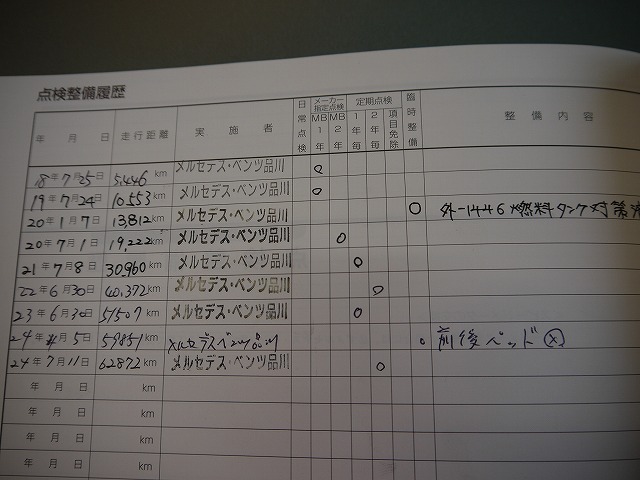 点検整備履歴
年 月 日 走行距離 実施者 日常点検 メーカー指定点検 MB1年 MB2年 定期点検 1年毎 2年毎 項目免除 臨時整備 整備内容
18年7月25日 5,446 km メルセデス・ベンツ品川 ○
19年7月24日 10,553 km メルセデス・ベンツ品川 ○
20年1月7日 13,812 km メルセデス・ベンツ品川 ○ 外-1446 燃料タンク対策
20年7月1日 19,222 km メルセデス・ベンツ品川 ○
21年7月8日 30,960 km メルセデス・ベンツ品川 ○
22年6月30日 40,372 km メルセデス・ベンツ品川 ○
23年6月30日 51507 km メルセデス・ベンツ品川 ○
24年4月5日 59851 km メルセデスベンツ品川 ○ 前後パッド
24年7月11日 62872 km メルセデス・ベンツ品川 ○
年 月 日 km
年 月 日 km
年 月 日 km
年 月 日 km